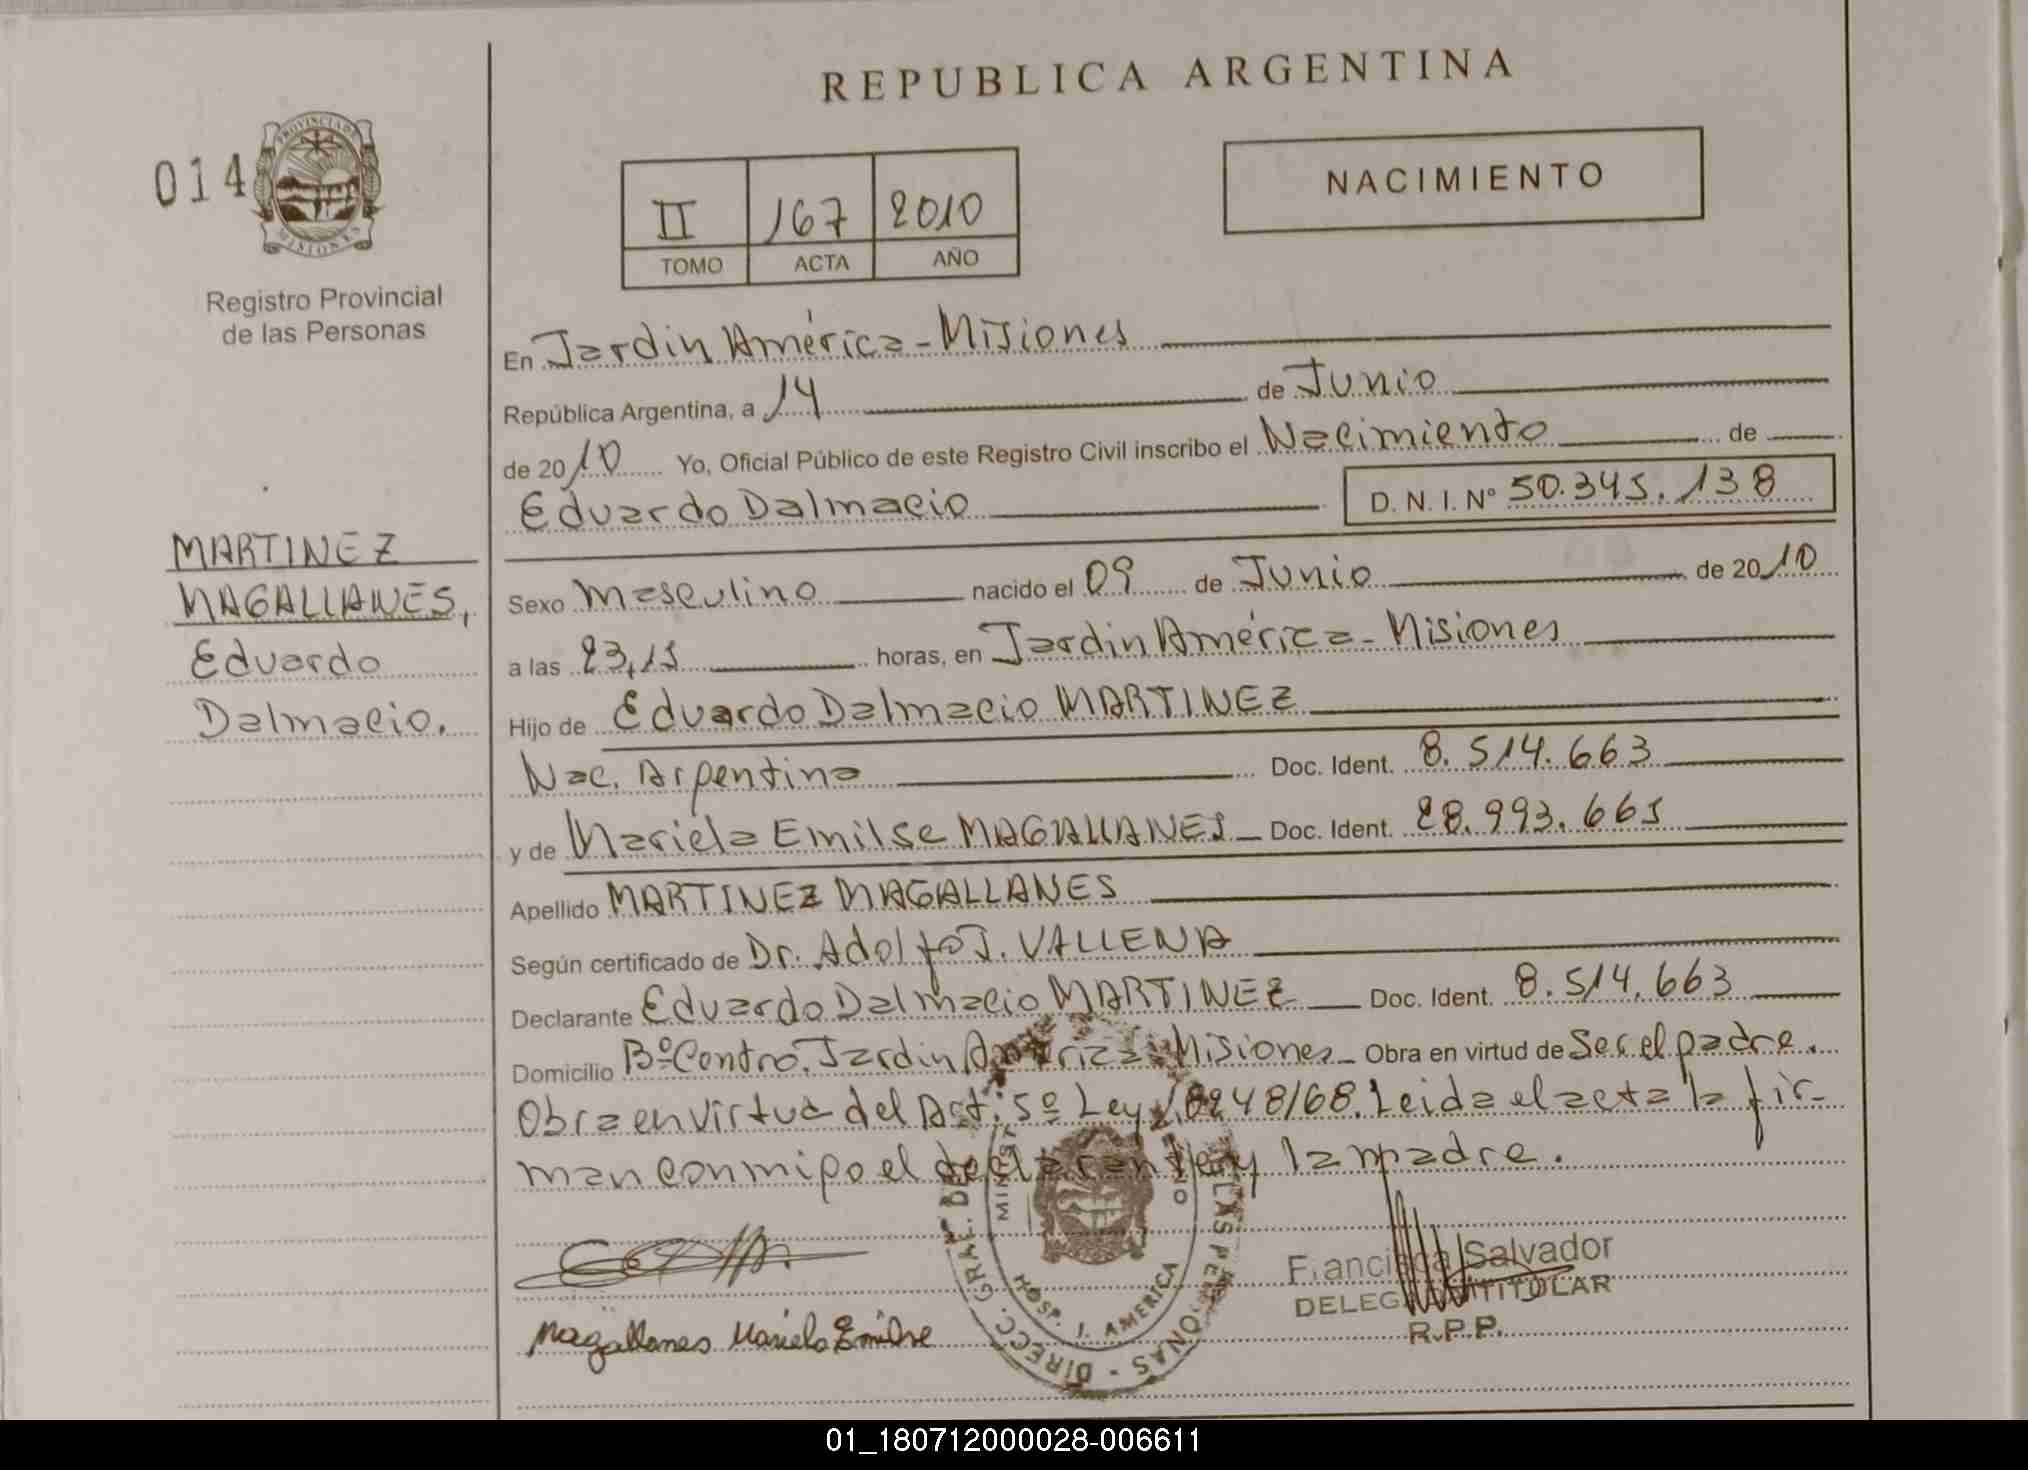 REPUBLICA ARGENTINA
014
PROVINCIA DE
MISIONES
Registro Provincial
de las Personas
II 167 2010
TOMO ACTA AÑO
NACIMIENTO
En Jardin América - Misiones
República Argentina, a 14 de Junio
de 2010 Yo, Oficial Público de este Registro Civil inscribo el Nacimiento de
Eduardo Dalmacio D. N. I. Nº 50.345.138
MARTINEZ
MAGALLANES,
Eduardo
Dalmacio.
Sexo Masculino nacido el 09 de Junio de 2010
a las 23,15 horas, en Jardin América - Misiones
Hijo de Eduardo Dalmacio MARTINEZ
Nac. Argentina Doc. Ident. 8.514.663
y de Mariela Emilse MAGALLANES Doc. Ident. 28.993.665
Apellido MARTINEZ MAGALLANES
Según certificado de Dr. Adolfo J. VALLENA
Declarante Eduardo Dalmacio MARTINEZ Doc. Ident. 8.514.663
Domicilio Bº Centro. Jardin América - Misiones - Obra en virtud de Ser el padre.
Obra en virtud del Art. 5º Ley 18248/68. Leida el acta la fir-
man conmigo el declarante y la madre.
Magallanes Mariela Emilse
DIRECC. GRAL. DE LAS PERSONAS
HOSP. J. AMERICA
Francisca Salvador
DELEGADA TITULAR
R.P.P.
01_180712000028-006611